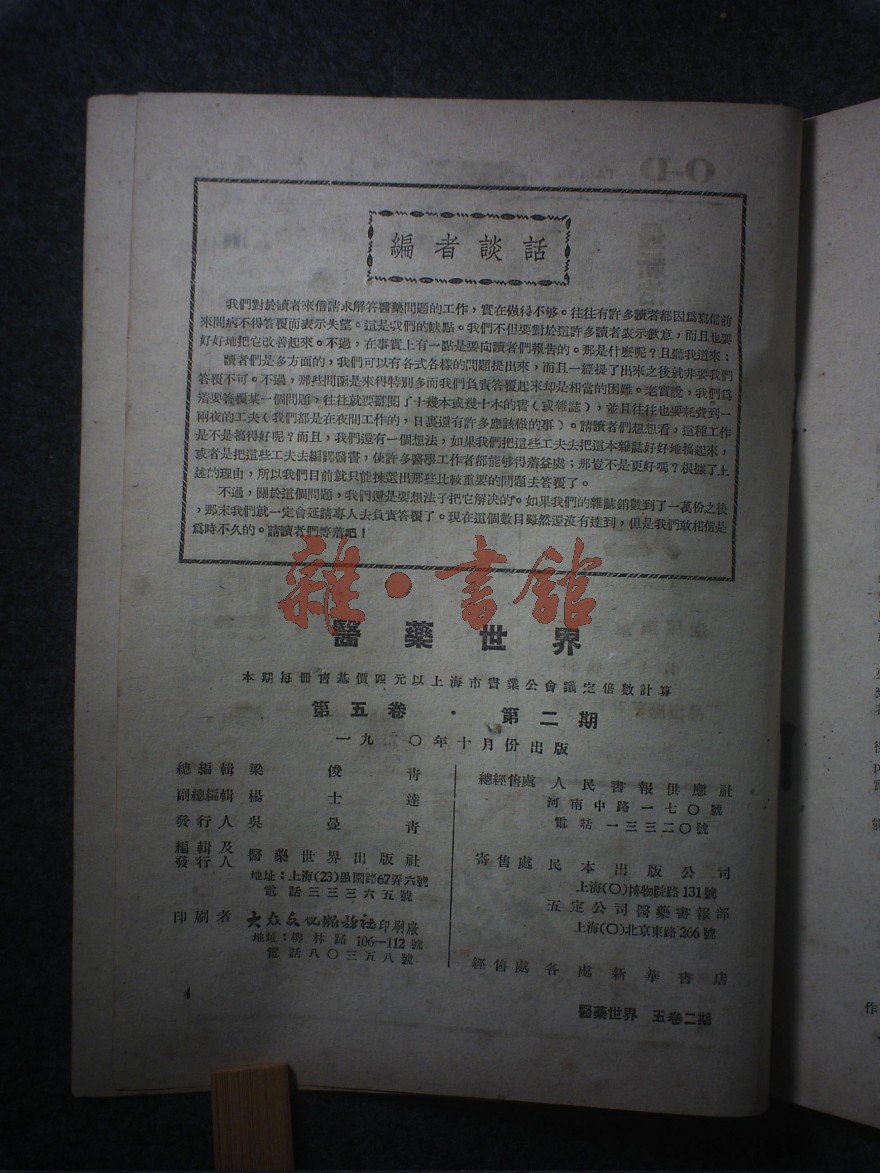 編者談話
我們對於讀者來信請求解答醫藥問題的工作，實在做得不够。往往有許多讀者都因爲寫信前
來問病不得答覆而表示失望。這是我們的缺點。我們不但要對於這許多讀者表示歉意，而且也要
好好地把它改善起來。不過，在事實上有一點是要向讀者們報告的。那是什麽呢？且聽我道來：
讀者們是多方面的，我們可以有各式各樣的問題提出來，而且一經提了出來之後就非要我們
答覆不可。不過，那些問函是來得特別多而我們負責答覆起來却是相當的困難。老實說，我們爲
着要答覆某一個問題，往往就要翻閱了十幾本或幾十本的書（或雜誌），並且往往也要耗費到一
兩夜的工夫（我們都是在夜間工作的，日裏還有許多應該做的事）。請讀者們想想看，這種工作
是不是搞得好呢？而且，我們還有一個想法，如果我們把這些工夫去把這本雜誌好好地搞起來，
或者是把這些工夫去編譯醫書，使許多醫學工作者都能够得着益處；那豈不是更好嗎？根據了上
述的理由，所以我們目前就只能揀選出那些比較重要的問題去答覆了。
不過，關於這個問題，我們還是要想法子把它解决的。如果我們的雜誌銷數到了一萬份之後
，那末我們就一定會延請專人去負責答覆了。現在這個數目雖然還沒有達到，但是我們敢相信是
爲時不久的。請讀者們等着吧！
雜·書館
醫藥世界
本期每册書基價四元以上海市書業公會議定倍數計算
第五卷·第二期
一九五〇年十月份出版
總編輯 梁俊青
副總編輯 楊士達
發行人 吳曼青
編輯及
發行人 醫藥世界出版社
地址：上海(23)愚園路67弄六號
電話三三三六五號
印刷者 大衆文化服務社印刷廠
地址：柳林路106—112號
電話八〇三五八號
總經售處 人民書報供應社
河南中路一七〇號
電話一三三二〇號
寄售處 民本出版公司
上海(〇)博物院路131號
五定公司醫藥書報部
上海(〇)北京東路266號
經售處 各處新華書店
4
醫藥世界 五卷二期